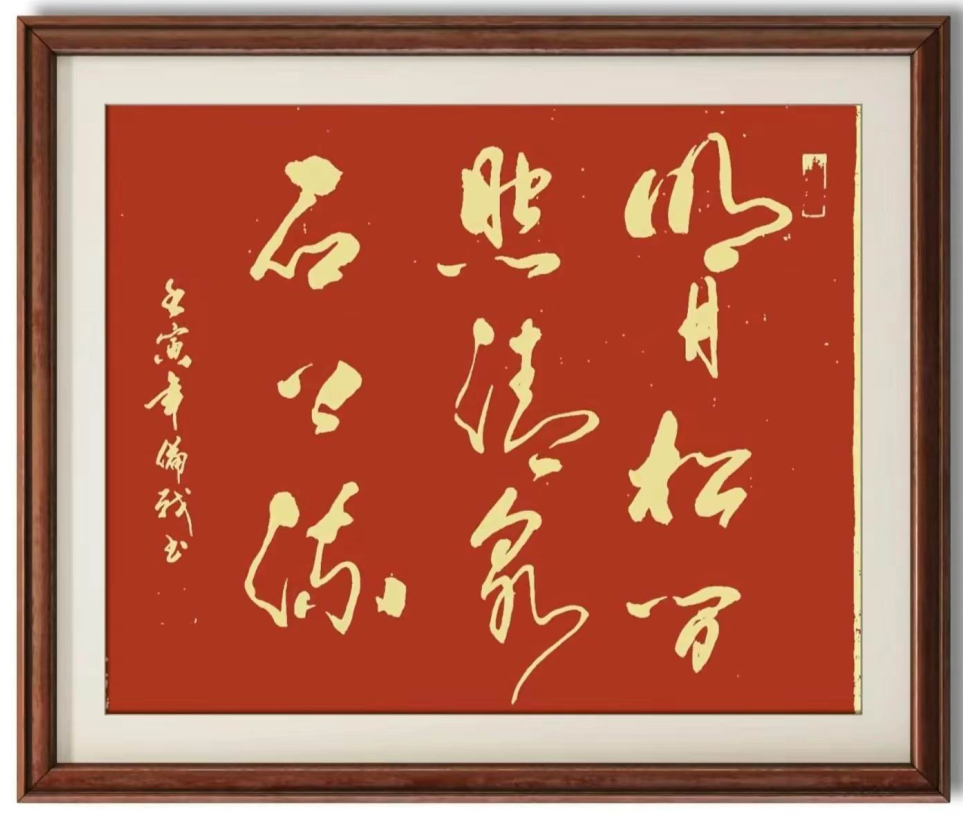 明月松间
照清泉
石上流
壬寅年书